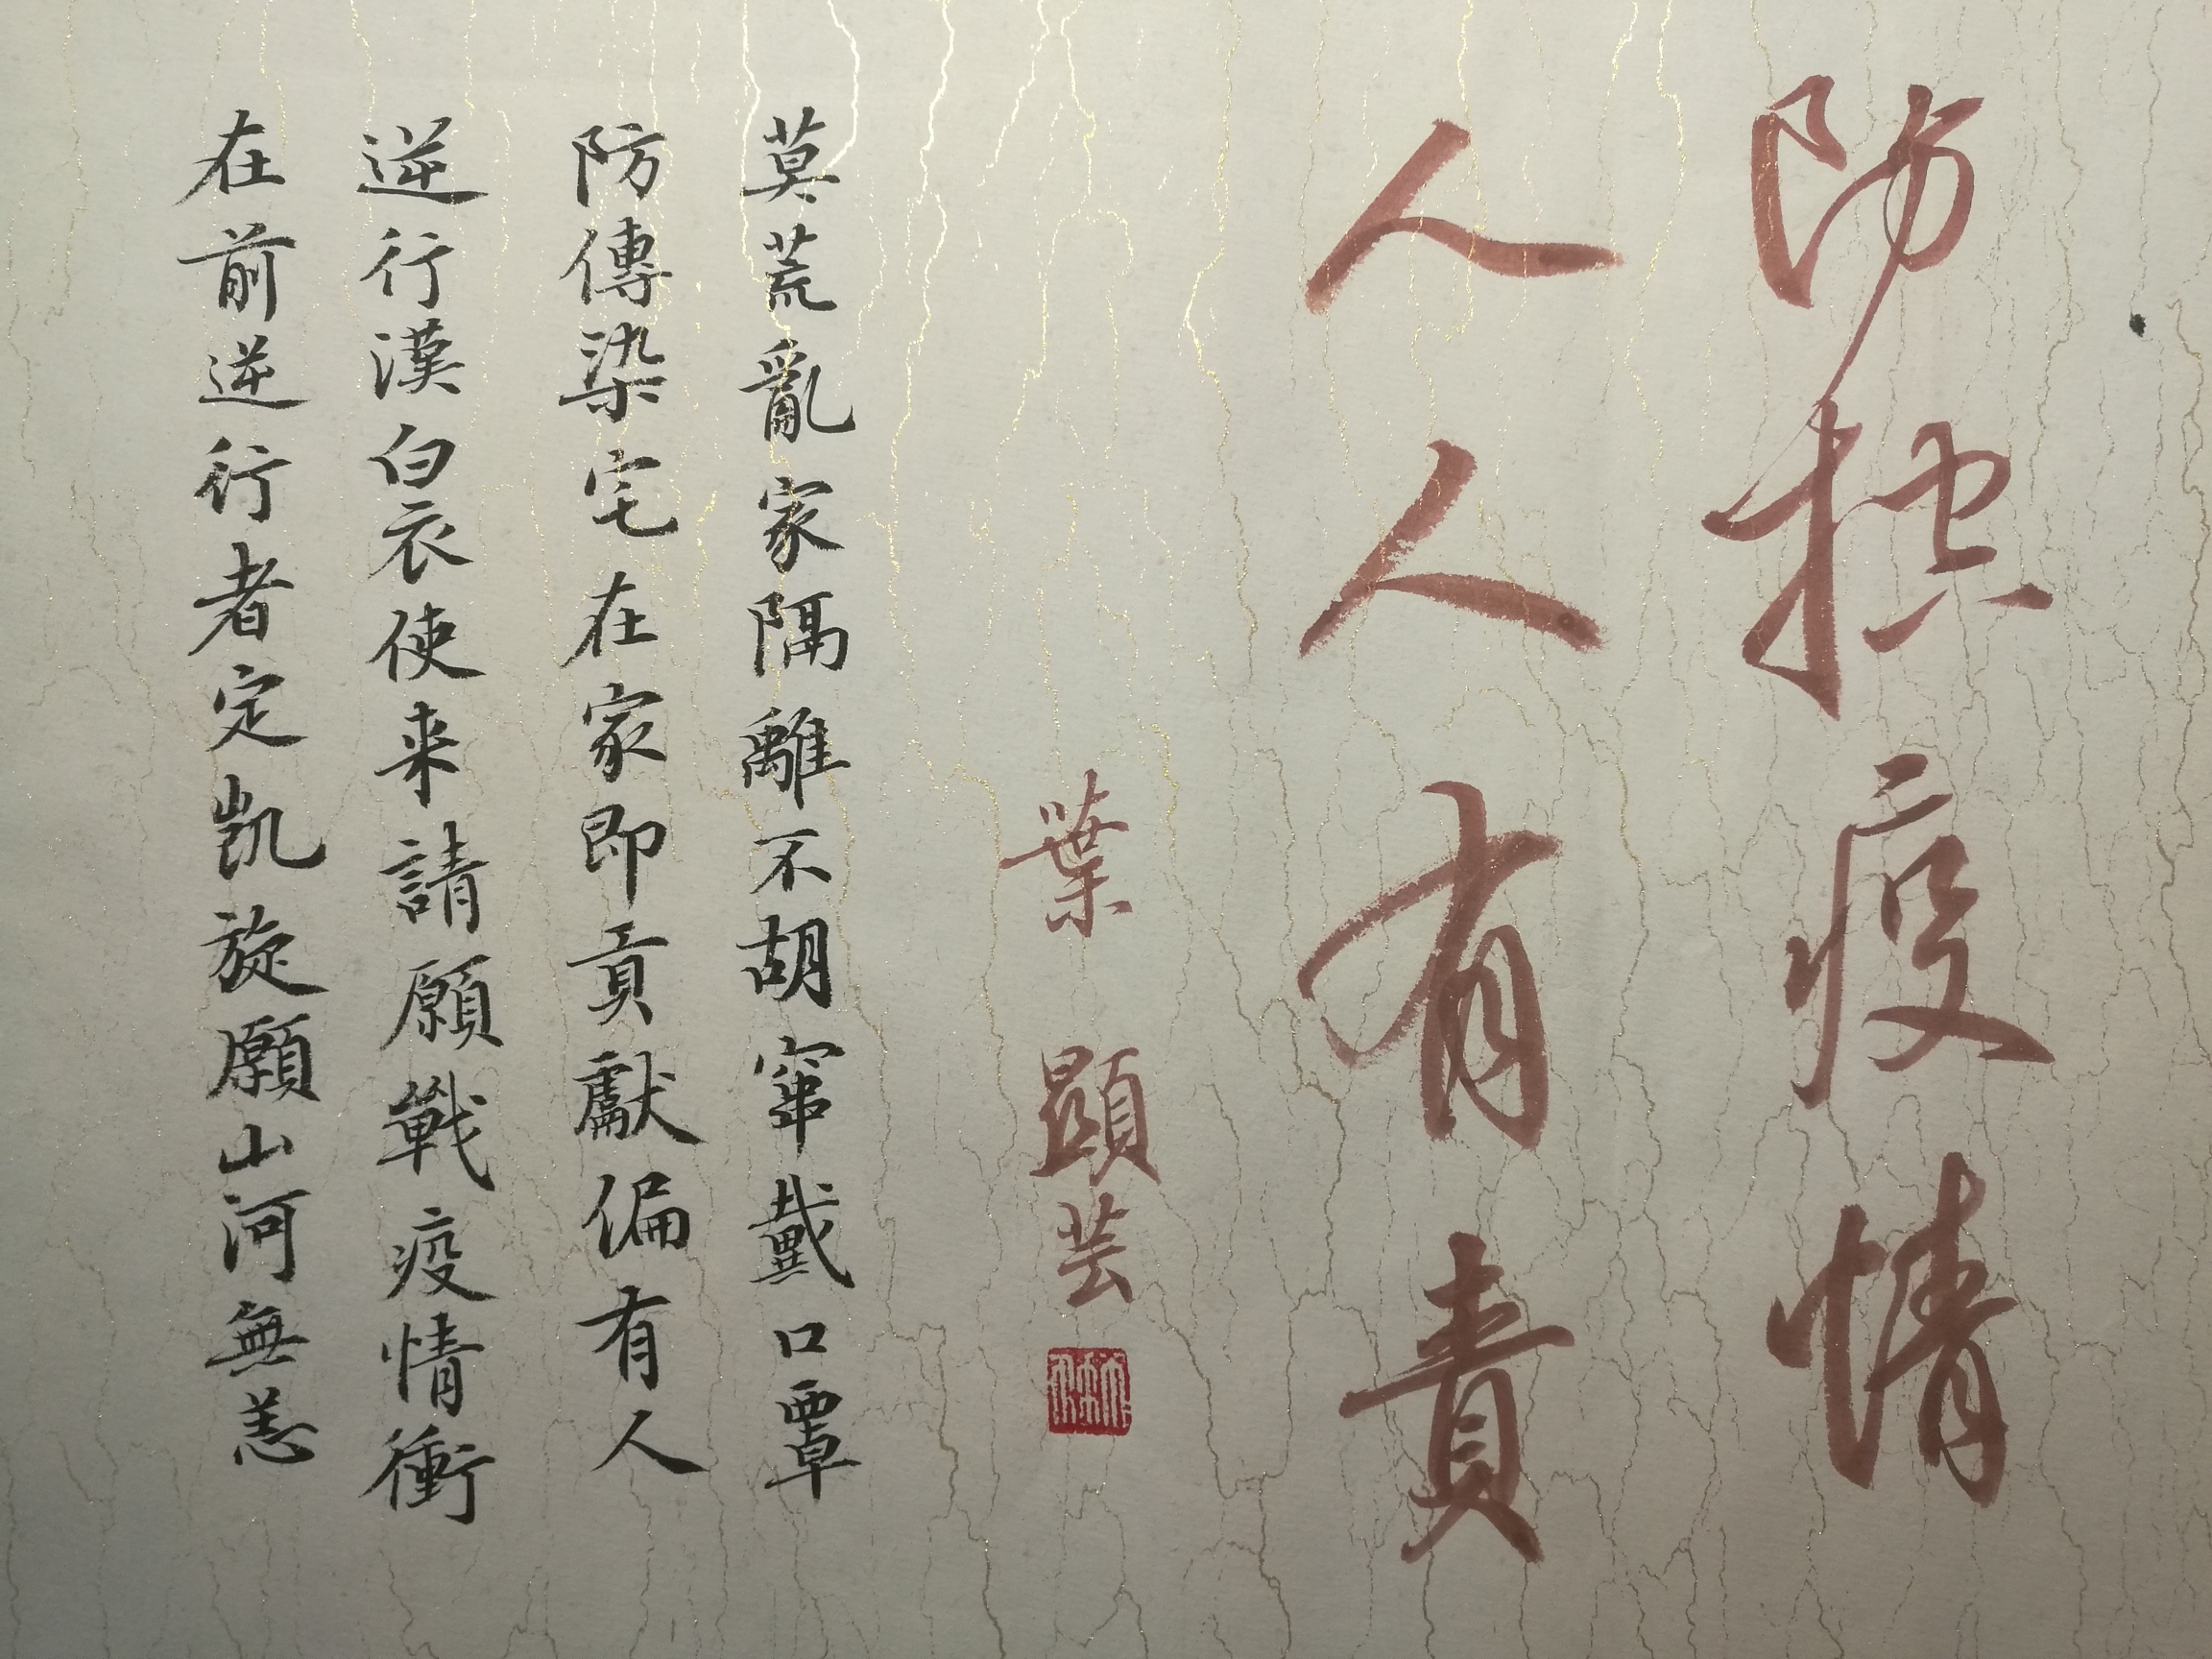 防控疫情
人人有責
葉顯芸
莫荒亂家隔離不胡窜戴口覃
防傳染宅在家即貢獻偏有人
逆行漢白衣使来請願戰疫情衝
在前逆行者定凱旋願山河無恙